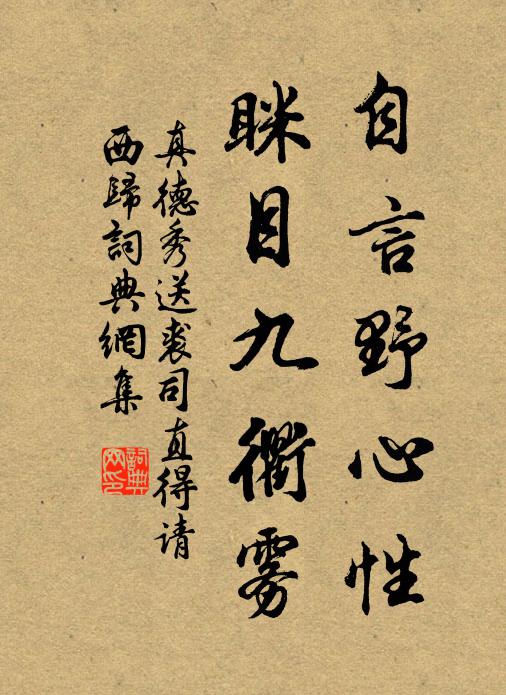 自言野心性
眯目九衢雾
真德秀送裘司直得请
西歸詞典網集
詞典网印